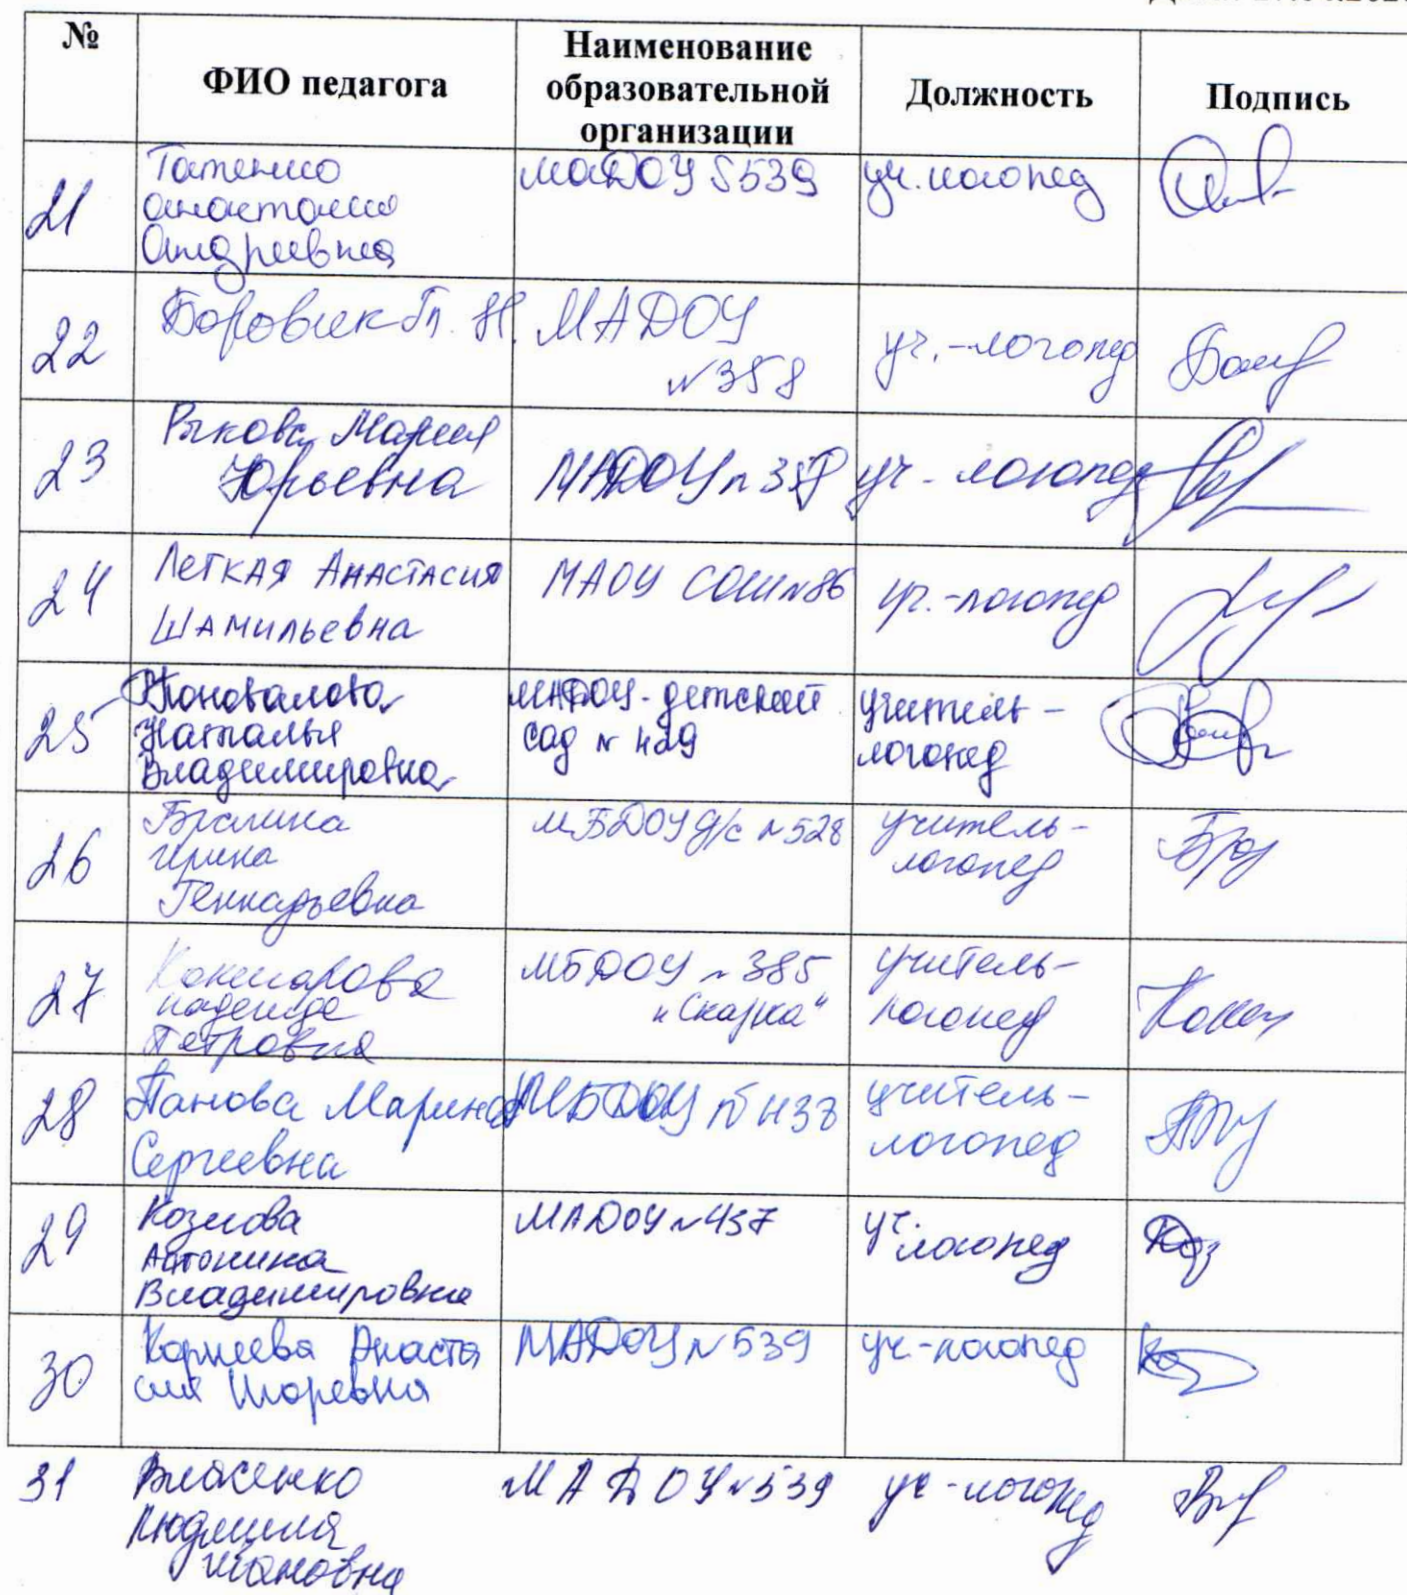 №
ФИО педагога
Наименование
образовательной
организации
Должность
Подпись
21
Анастасия
Андреевна
МАДОУ 539
уч. логопед
22
Боровик Гл. Н.
МАДОУ
№358
уч.-логопед
23
Рыкова Мария
Юрьевна
МАДОУ №
уч-логопед
24
Легкая Анастасия
Шамильевна
МАОУ СОШ №86
уч.-логопед
25
Коновалова
Наталья
Владимировна
МАДОУ-детский
сад № 429
учитель-
логопед
26
Ирина
Геннадьевна
МБДОУ д/с №528
учитель-
логопед
27
Надежда
Петровна
МБДОУ №385
"Сказка"
учитель-
логопед
28
Панова Марина
Сергеевна
МБДОУ № 438
учитель-
логопед
29
Козлова
Антонина
Владимировна
МАДОУ №437
уч. логопед
30
Корнеева Анаста
сия Игоревна
МАДОУ №539
уч-логопед
31
Власенко
Людмила
Ивановна
МАДОУ №539
уч-логопед